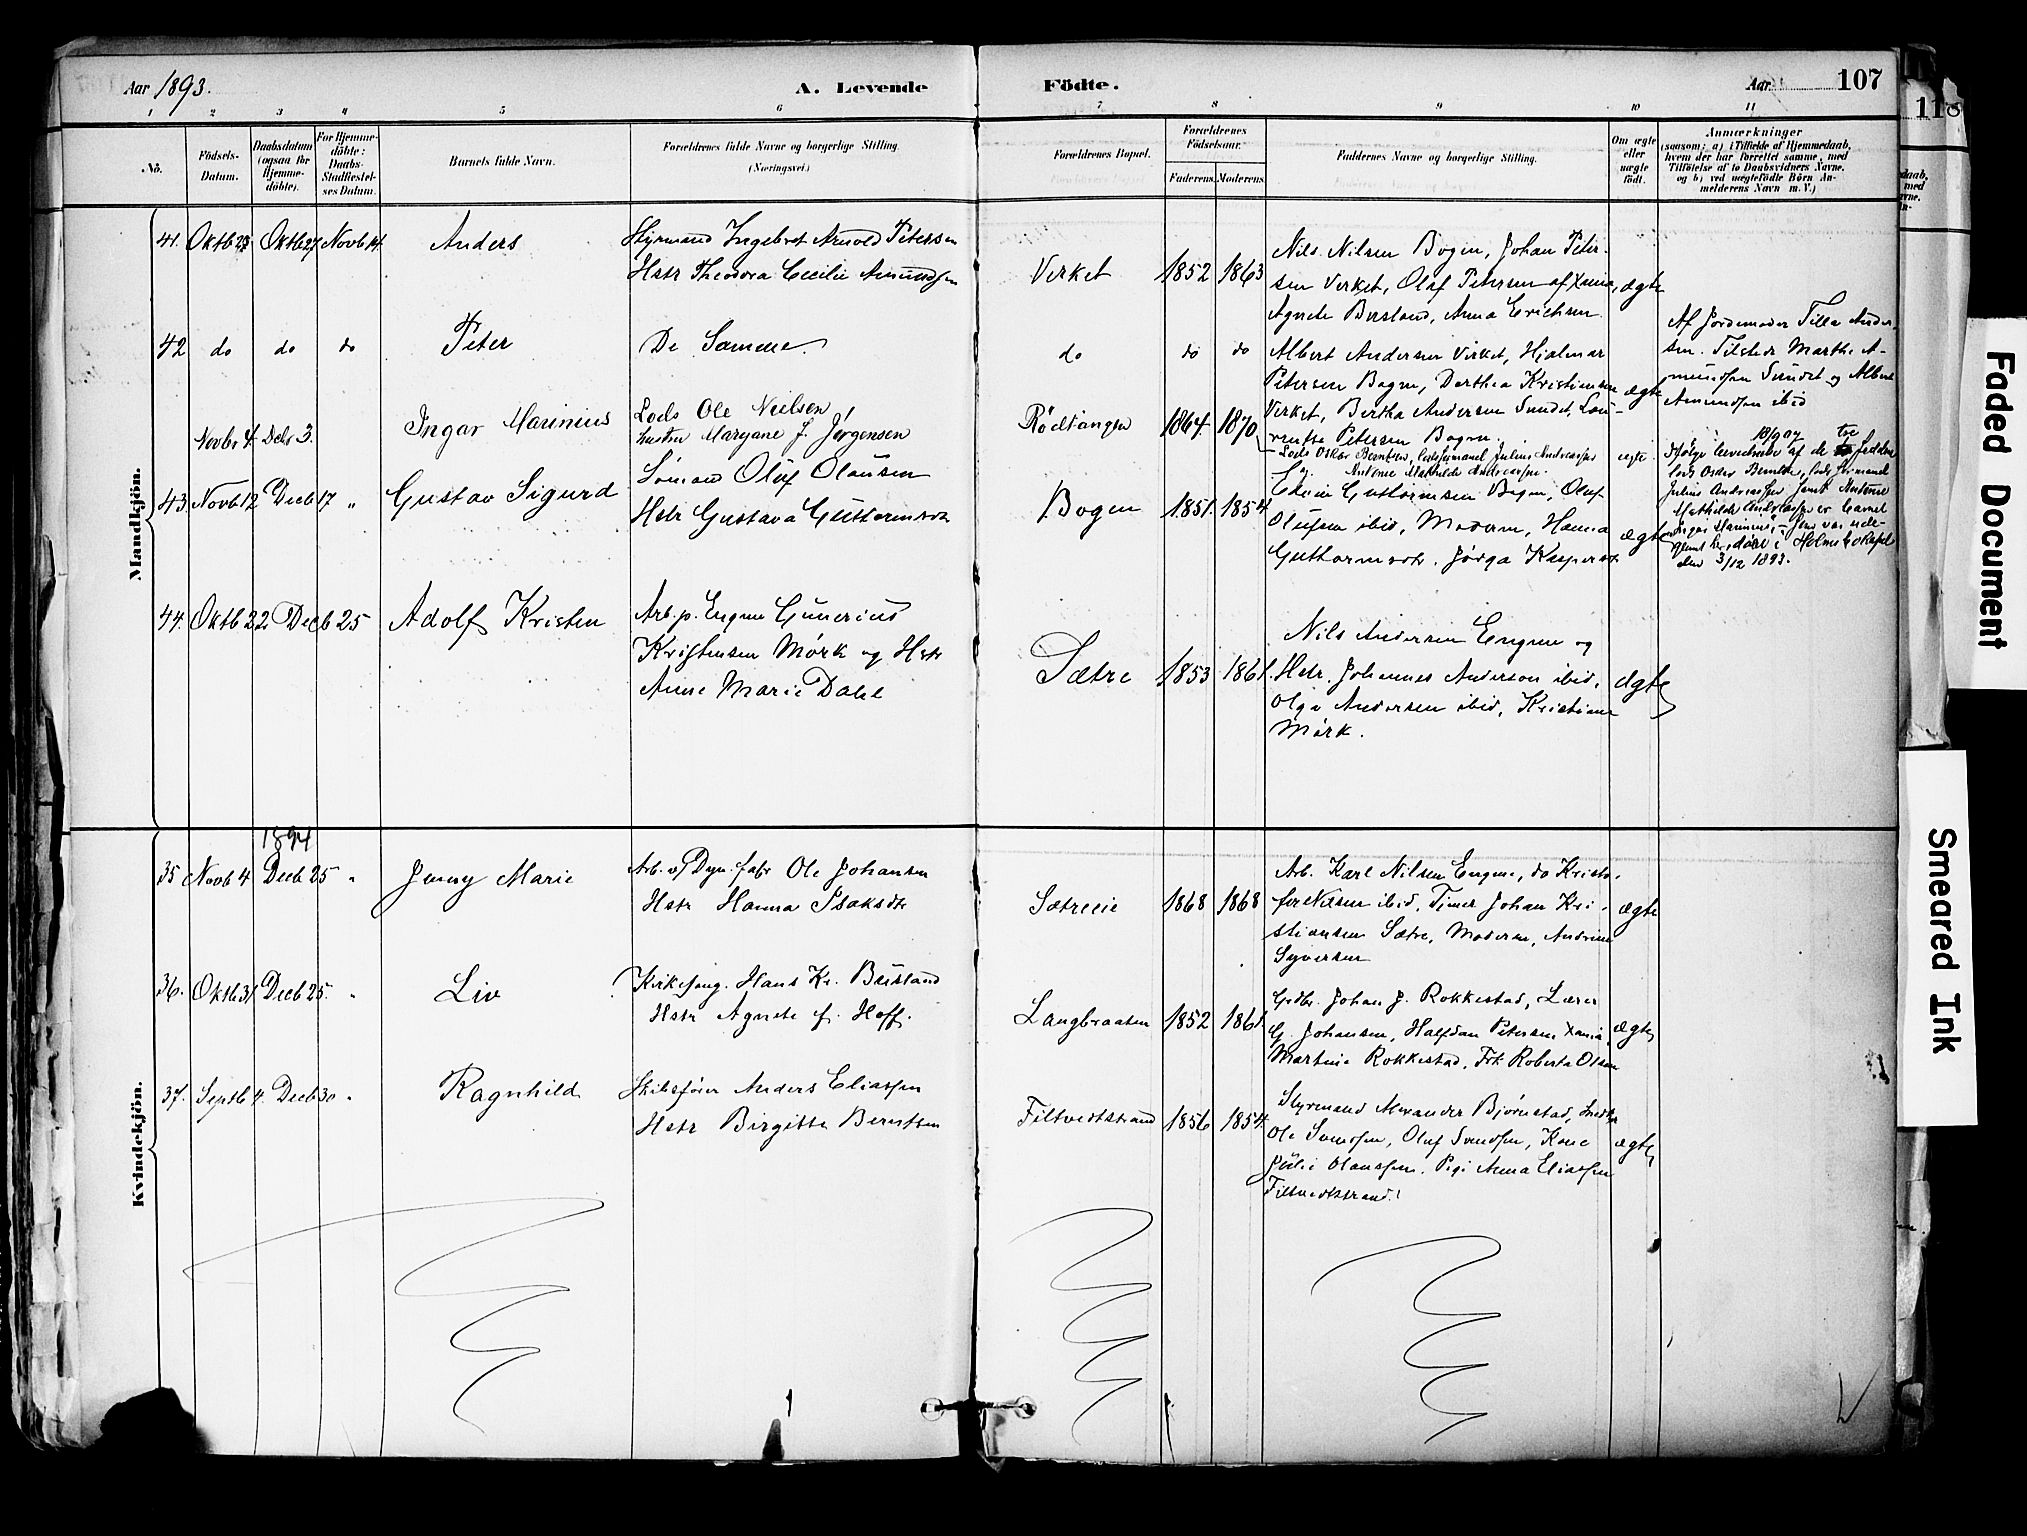 Aar 1893.
A. Levende Födte.
Aar
107
118
1 2 3 4 5 6 7 8 9 10 11
No.
Födsels-Datum.
Daabsdatum (ogsaa for Hjemme-döbte).
For Hjemme-döbte: Daabs-Stadfæstel-ses Datum.
Barnets fulde Navn.
Forældrenes fulde Navne og borgerlige Stilling. (Næringsvei.)
Forældrenes Bopæl.
Forældrenes Födselsaar.
Faderens. Moderens.
Faddernes Navne og borgerlige Stilling.
Om ægte eller uægte födt.
Anmærkninger (saasom: a) i Tilfælde af Hjemmedaab, hvem der har forrettet samme, med Tilföielse af to Daabsvidners Navne, og b) ved uægtefödte Börn An-melderens Navn m. V.)
Mandkjön.
41. Oktb 23 Oktb 27 Novb 14 Anders
Styrmand Ingebret Arnold Petersen
Hstr Theodora Cecilie Amundsen
Verket 1852 1863
Nils Nilsen Bogen, Johan Peter-
sen Verket, Olaf Petersen af Xania,
Agnete Bersland, Anna Erichsen
ægte
42 do do do Peter
De Samme.
do do do
Albert Andersen Verket, Hjalmar
Petersen Bogen, Dorthea Kristiansen
Verket, Bertha Andersen Sundet, Lau-
rentse Petersen Bogen.
ægte
Af Jordemoder Tilla Ander-
sen. Tilstede Marthe A-
mundsen Sundet og Albert
Amundsen ibid
Novbr 4. Decbr 3. Ingar Marinius
Lods Ole Nielsen
hustru Maryane J. Jørgensen
Rödtangen 1864. 1870
Lods Oskar Berntsen, Julius Andreassen
og Antonie Mathilde Andreassen.
ægte.
18/9 07
Ifølge af de tre Faddere
lods Oscar Berntsen, lods
Julius Andreassen samt Antonie
Mathilde Andreassen er barnet
Ingar Marinius,
glemt her, døbt i Holmsbo Kapel
den 3/12 1893.
43 Novb 12 Decb 17 " Gustav Sigurd
Sömand Oluf Olausen
Hstr Gustava Guttormsdtr
Bogen 1851. 1854
Edvin Guttormsen Bogen, Oluf
Olufsen ibid, Moderen, Hanna
Guttormsdtr. Jørga Kaspersdtr
ægte
44. Oktb 22 Decb 25 Adolf Kristen
Arb. p. Engene Gunerius
Kristensen Mørk og Hstr
Anne Marie Dahl
Sætre 1853 1861.
Nils Andersen Engene og
Hstr. Johannes Anderson ibid,
Olga Andersen ibid, Kristiane
Mørk.
ægte
Kvindekjön.
1894
35 Novb 4 Decb 25 " Jenny Marie
Arb. v/ Dyn. fabr Ole Johansen
Hstr Hanna Isaksdtr
Sætreeie 1868 1868
Arb. Karl Nilsen Engene, do Kristo-
fer Nilsen ibid, Tømr Johan Kri-
stiansen Sætre, Moderen, Andrine
Syversen
ægte
36. Oktb 31 Decb 25. " Liv
Kirkesang. Hans Kr. Bersland
Hstr Agnete f. Hoff.
Langbraaten 1852 1861.
Grdbr. Johan J. Rokkestad, Lærer
G. Johansen, Halfdan Petersen Xania
Martinie Rokkestad, Frk Roberta Olsen
ægte
37. Septb 4. Decb 30 " Ragnhild
Skibsfører Anders Eliassen
Hstr Birgitte Berntsen
Filtvedtstrand 1856 1854.
Styrmand Alexander Bjørnstad,
Ole Svendsen, Oluf Svendsen, Kone
Julie Olaussen. Pige Anna Eliassen
Filtvedtstrand.
ægte
Faded Document
Smeared Ink